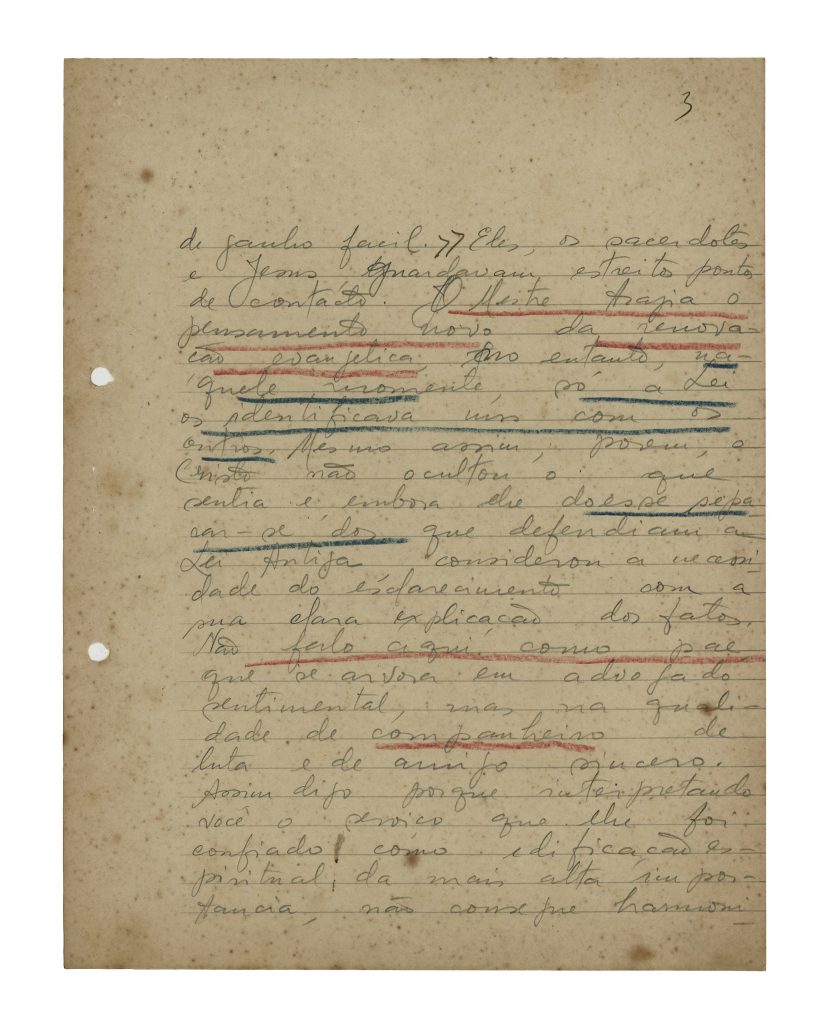 3
de ganho facil. >> Eles, os sacerdotes
e Jesus guardavam estreitos pontos
de contácto. O Mestre trazia o
pensamento novo da renova-
ção evangelica, no entanto, na-
quele momento, só a Lei
os identificava uns com os
outros. Mesmo assim, porem, o
Cristo não ocultou o que
sentia e embora lhe doesse sepa-
rar-se dos que defendiam a
Lei Antiga considerou a necessi-
dade do esclarecimento com a
sua clara explicação dos fatos.
Não falo aqui como pae
que se arvora em advogado
sentimental, mas na quali-
dade de companheiro de
luta e de amigo sincero.
Assim digo porque interpretando
você o serviço que lhe foi
confiado como edificação es-
piritual, da mais alta impor-
tancia, não consegue harmoni-